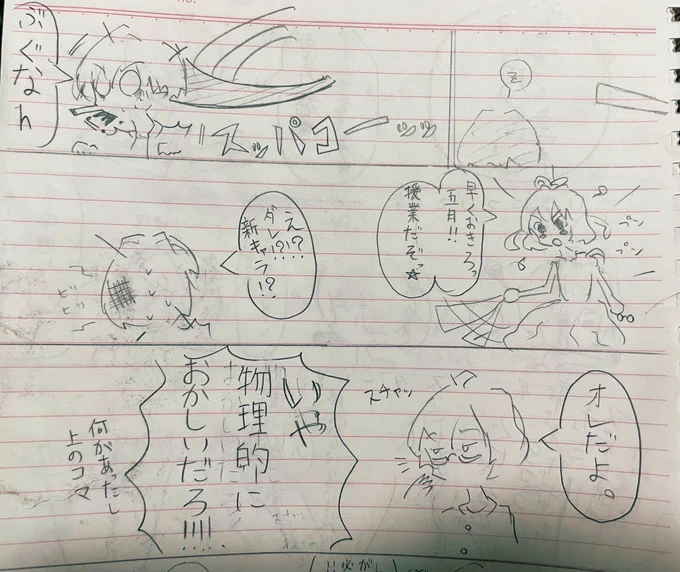 z
スッパコーッッ
ぶぐなん
プン
プン
早くおきろっ
五月!!
授業だぞっ☆
え?
ダレ!?!?
新キャラ!?
ビビ
オレだよ。
スチャッ
いや
物理的に
おかしいだろ!!!!
何があったし
上のコマ